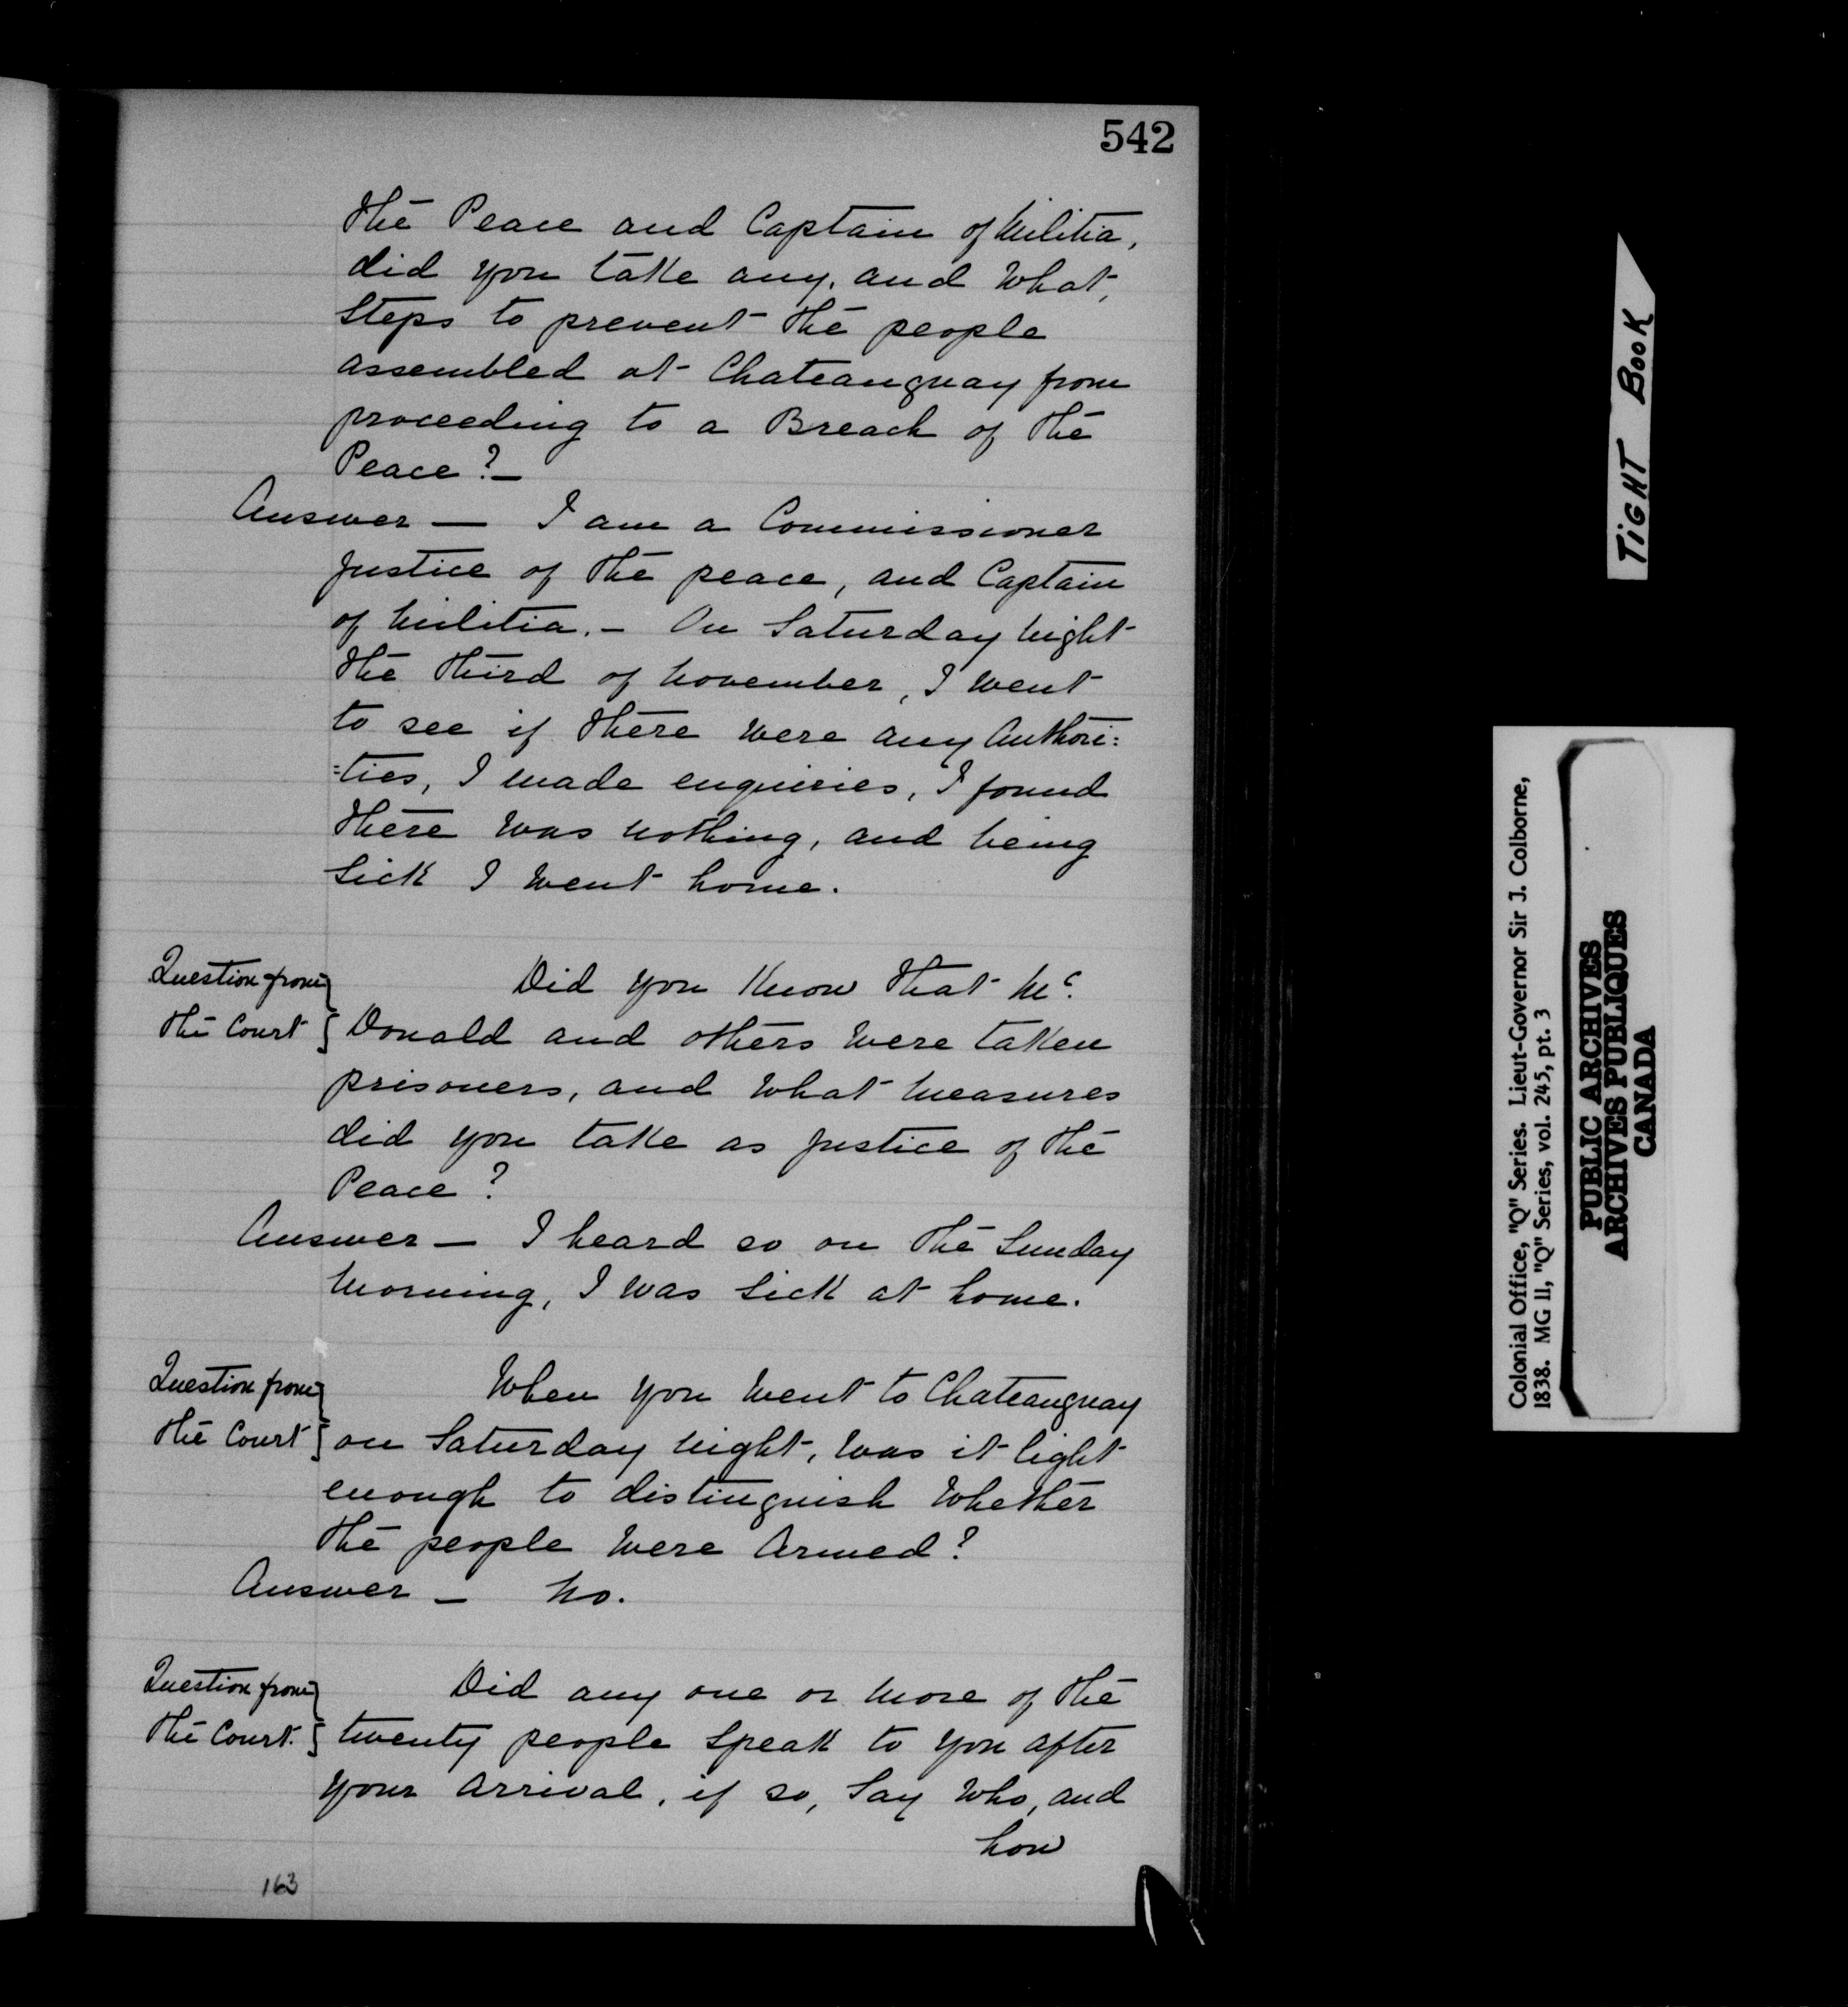 542
the Peace and Captain of Militia,
did you take any, and what,
Steps to prevent the people
assembled at Chateauguay from
proceeding to a Breach of the
Peace? —
Answer — I am a Commissioner
Justice of the peace, and Captain
of Militia. — On Saturday night
the third of November, I went
to see if there were any Authori:
:ties, I made enquiries, I found
there was nothing, and being
Sick I went home.
Question from
the Court
Did you know that Mc.
Donald and others were taken
prisoners, and what measures
did you take as Justice of the
Peace?
Answer — I heard so on the Sunday
Morning, I was sick at home.
Question from
the Court
When you went to Chateauguay
on Saturday night, was it light
enough to distinguish whether
the people were Armed?
Answer — No.
Question from
the Court.
Did any one or more of the
twenty people Speak to you after
your arrival, if so, Say who, and
how
163
TIGHT BOOK
Colonial Office, "Q" Series. Lieut-Governor Sir J. Colborne,
1838. MG 11, "Q" Series, vol. 245, pt. 3
PUBLIC ARCHIVES
ARCHIVES PUBLIQUES
CANADA